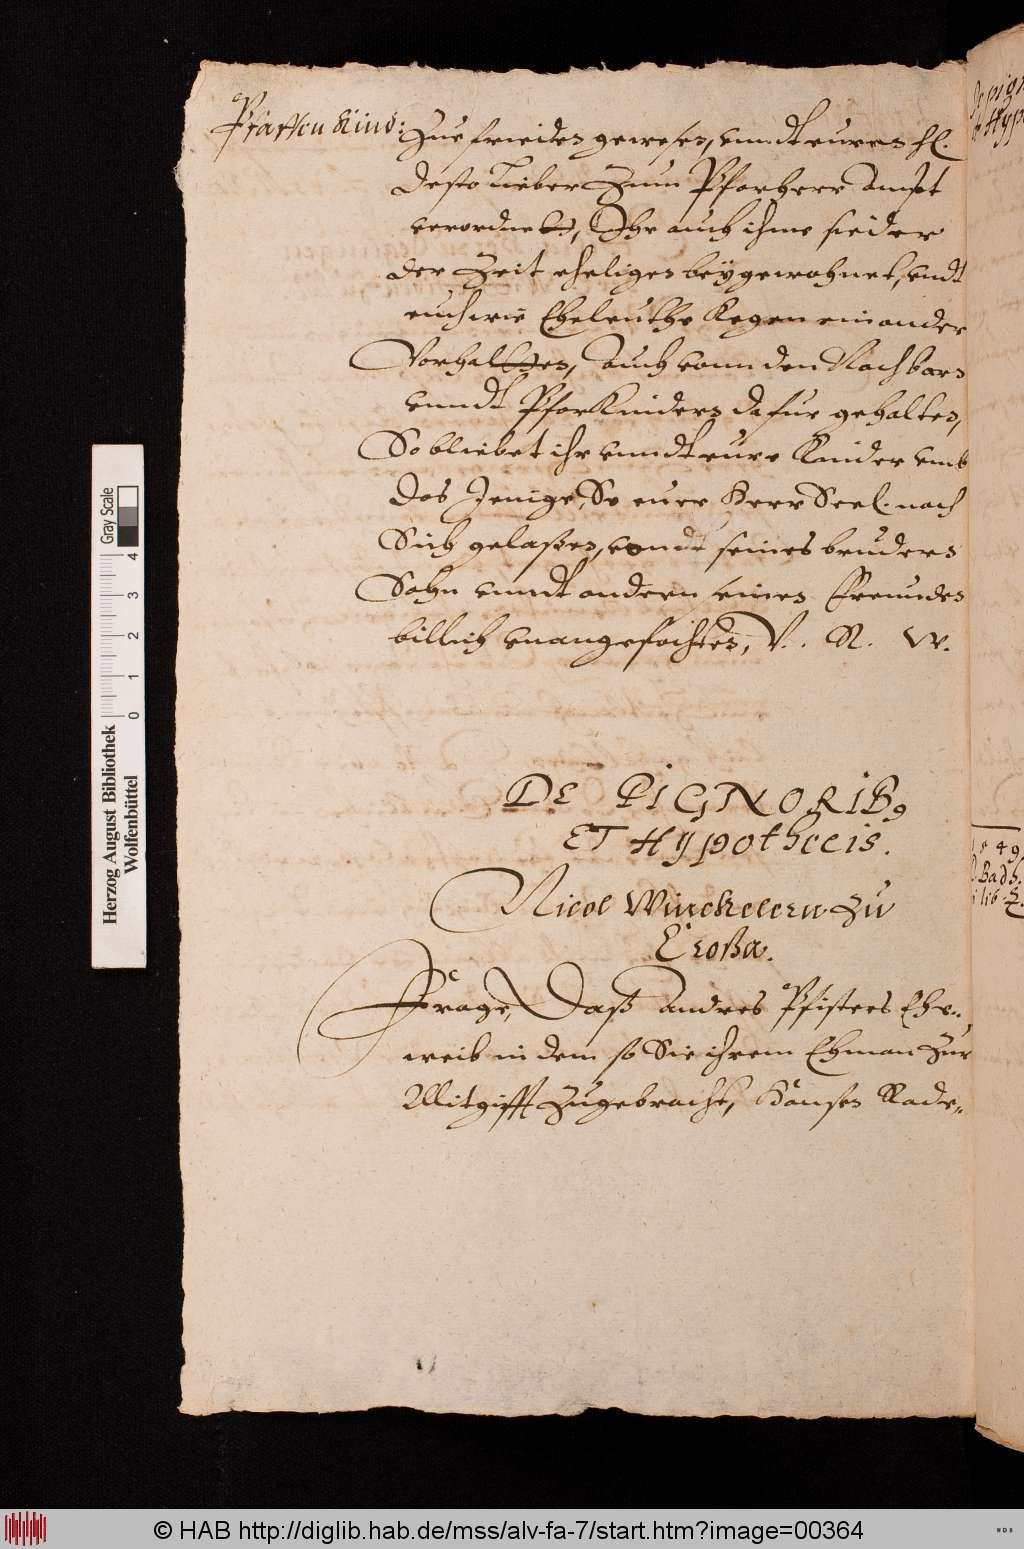 Pfaffen Kind:
Zue frieden gewesen, vnndt euren H.
desto lieber Zum Pfarherr Ampt
verordnett, Ihr auch ihme sieder
der Zeit eheligen beÿgewohnet, vndt
euch wie Eheleuthe Kegen einander
Vorhaltten, Auch vonn den Nachbarn
vnndt PfarKindern dafur gehalten,
So bliebet ihr vnndt eure Kinder vmb
das Jenige, So euer Herr Seel. nach
Sich gelaßen, vonndt seines bruders
Sohn vnndt andern seinen Freunden
billich vnangefochten, V. R. W.
DE PIGNORIB9
ET Hypothecis.
Nicol Winckelern Zu
Croßa.
Frage, Daß Andres Pfisters Ehe-
weib in dem so Sie ihrem Ehman Zur
Mitgifft Zugebracht, Hansen Rade-
De pign
et Hypo
1549
Bad
lib. 2.
Herzog August Bibliothek
Wolfenbüttel
0 1 2 3 4
Gray Scale
© HAB http://diglib.hab.de/mss/alv-fa-7/start.htm?image=00364